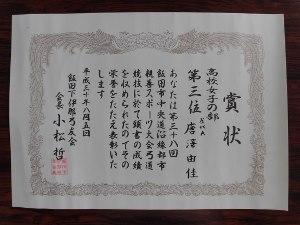 賞状
高校女子の部
第三位 唐澤由佳
あなたは第三十八回
飯田市中央道沿線都市
親善スポーツ大会弓道
競技に於て頭書の成績
を収められたのでその
栄誉をたたえ表彰いた
します
平成三十年八月五日
飯田下伊那弓友会
会長 小松哲